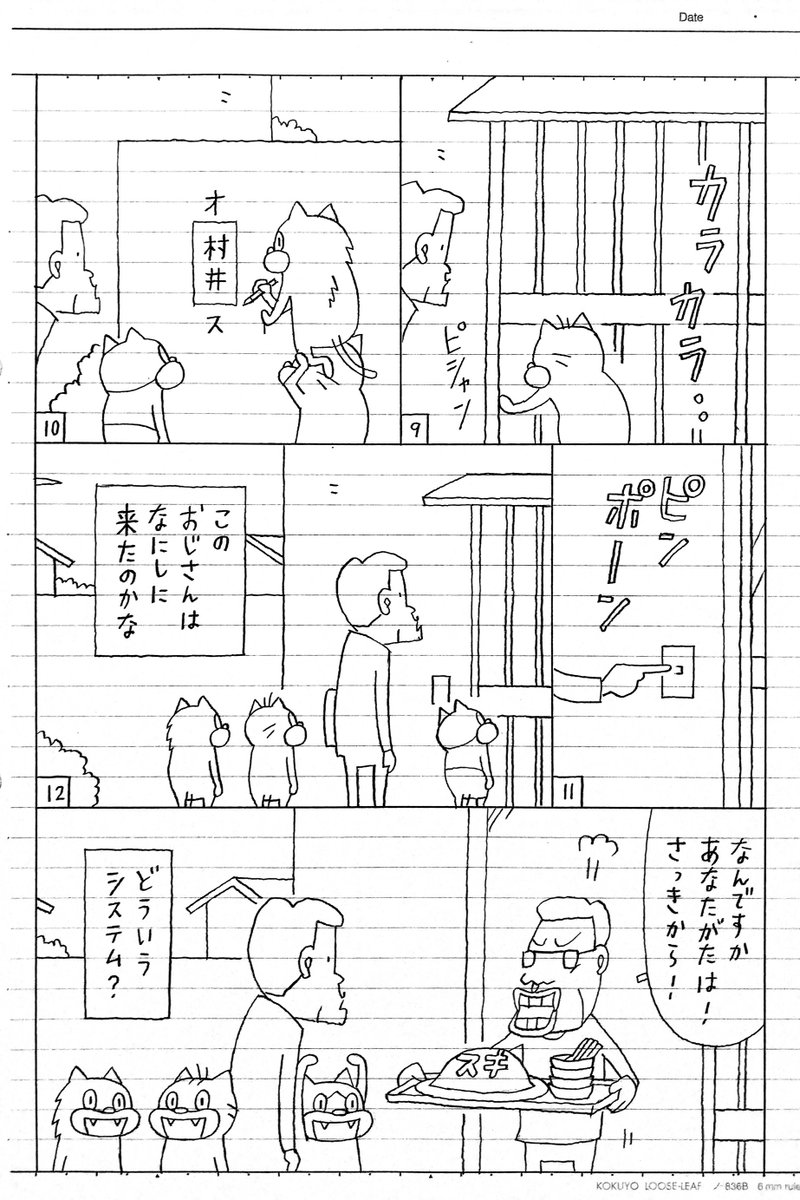 Date
カラカラ…
ピシャン
9
オ
村井
ス
10
ピン
ポーン
11
この
おじさんは
なにしに
来たのかな
12
なんですか
あなたがたは！
さっきから！
スキ
どういう
システム？
KOKUYO LOOSE-LEAF ノ-836B 6 mm rule